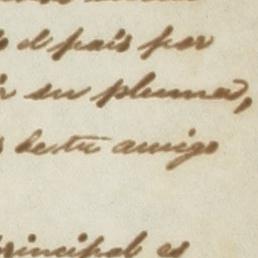 el país por
su pluma,
de tu amigo
principal es